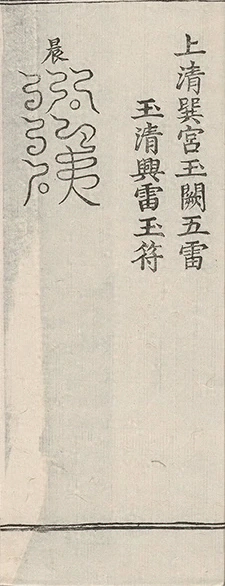 上清巽宮玉闕五雷
玉清興雷玉符
晨